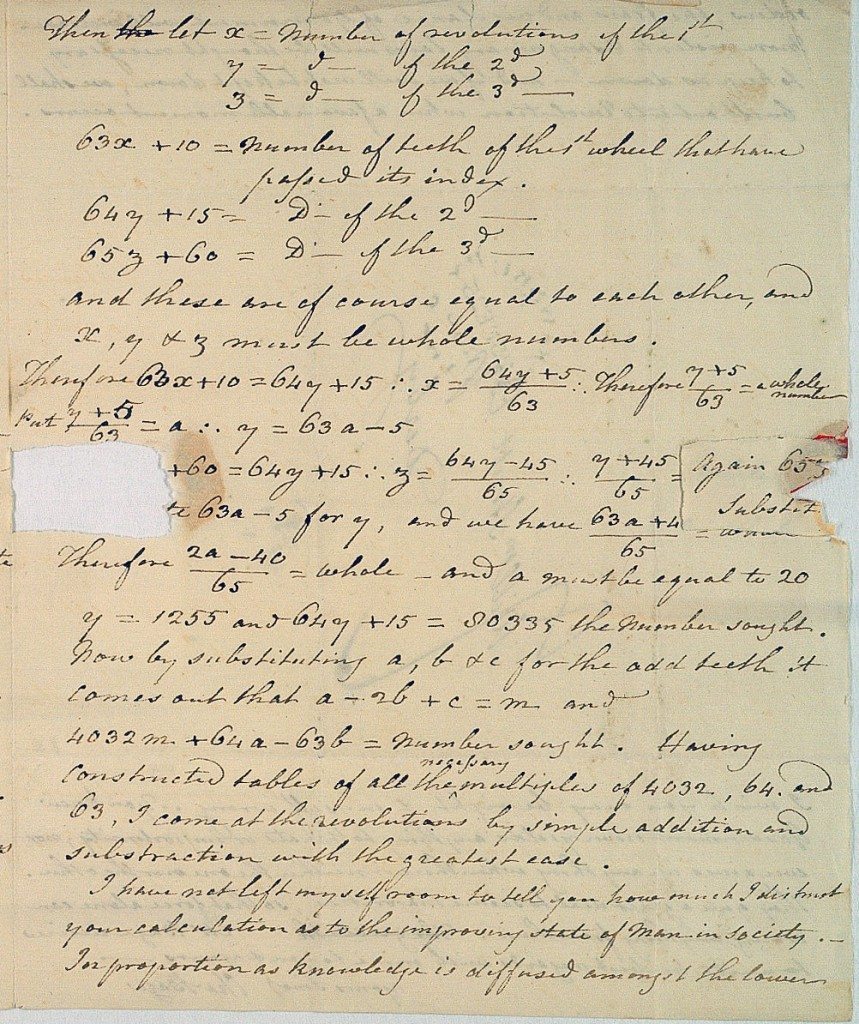 Then the let x = Number of revolutions of the 1st
y = do — of the 2d
z = do — of the 3d —
63x + 10 = Number of teeth of the 1st wheel that have
passed its index.
64y + 15 = Do — of the 2d —
65z + 60 = Do — of the 3d —
and these are of course equal to each other, and
x, y & z must be whole numbers.
Therefore 63x+10 = 64y+15 ∴ x = 64y+5/63 ∴ Therefore y+5/63 = a whole number
Put y+5/63 = a ∴ y = 63a-5
Again 65z
+60 = 64y+15 ∴ z = 64y-45/65 ∴ y+45/65 =
Substit
te 63a-5 for y, and we have 63a+4 /65 =
Therefore 2a-40/65 = whole — and a must be equal to 20
y = 1255 and 64y+15 = 80335 the Number sought.
Now by substituting a, b & c for the odd teeth it
comes out that a - 2b + c = m and
4032m + 64a - 63b = Number sought. Having
constructed tables of all the necessary multiples of 4032, 64. and
63, I come at the revolutions by simple addition and
substraction with the greatest ease.
I have not left myself room to tell you how much I distrust
your calculation as to the improving state of Man in Society. —
In proportion as knowledge is diffused amongst the lower